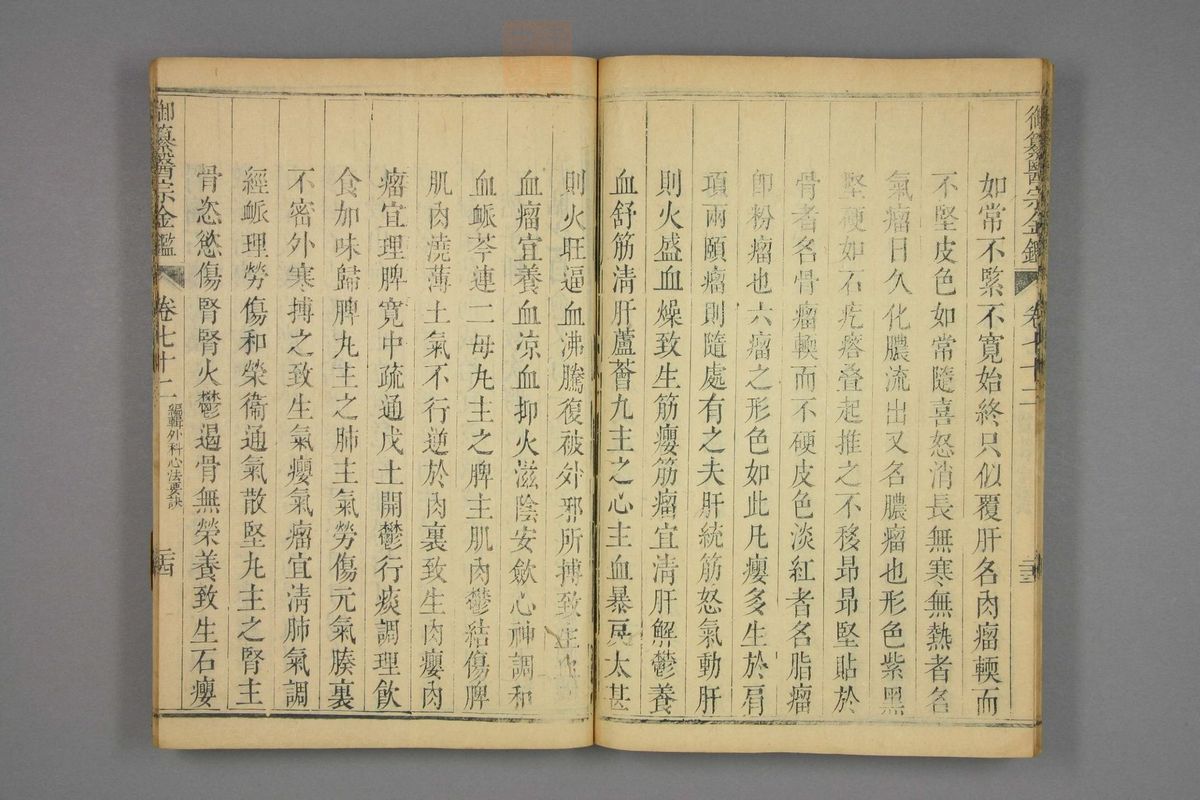 御纂醫宗金鑑
卷七十二
二十三
如常不緊不寬始終只似覆肝名肉瘤輭而
不堅皮色如常隨喜怒消長無寒無熱者名
氣瘤日久化膿流出又名膿瘤也形色紫黑
堅硬如石疙瘩叠起推之不移昂昂堅貼於
骨者名骨瘤輭而不硬皮色淡紅者名脂瘤
卽粉瘤也六瘤之形色如此凡癭多生於肩
項兩頤瘤則隨處有之夫肝統筋怒氣動肝
則火盛血燥致生筋癭筋瘤宜清肝解鬱養
血舒筋清肝蘆薈丸主之心主血暴戾太甚
則火旺逼血沸騰復被外邪所搏致生血
血瘤宜養血凉血抑火滋陰安斂心神調和
血脈芩連二母丸主之脾主肌肉鬱結傷脾
肌肉澆薄土氣不行逆於肉裏致生肉癭肉
瘤宜理脾寬中疏通戊土開鬱行痰調理飲
食加味歸脾丸主之肺主氣勞傷元氣腠裏
不密外寒搏之致生氣癭氣瘤宜清肺氣調
經脈理勞傷和榮衛通氣散堅丸主之腎主
骨恣慾傷腎腎火鬱遏骨無榮養致生石癭
御纂醫宗金鑑
卷七十二
編輯外科心法要訣
二十四